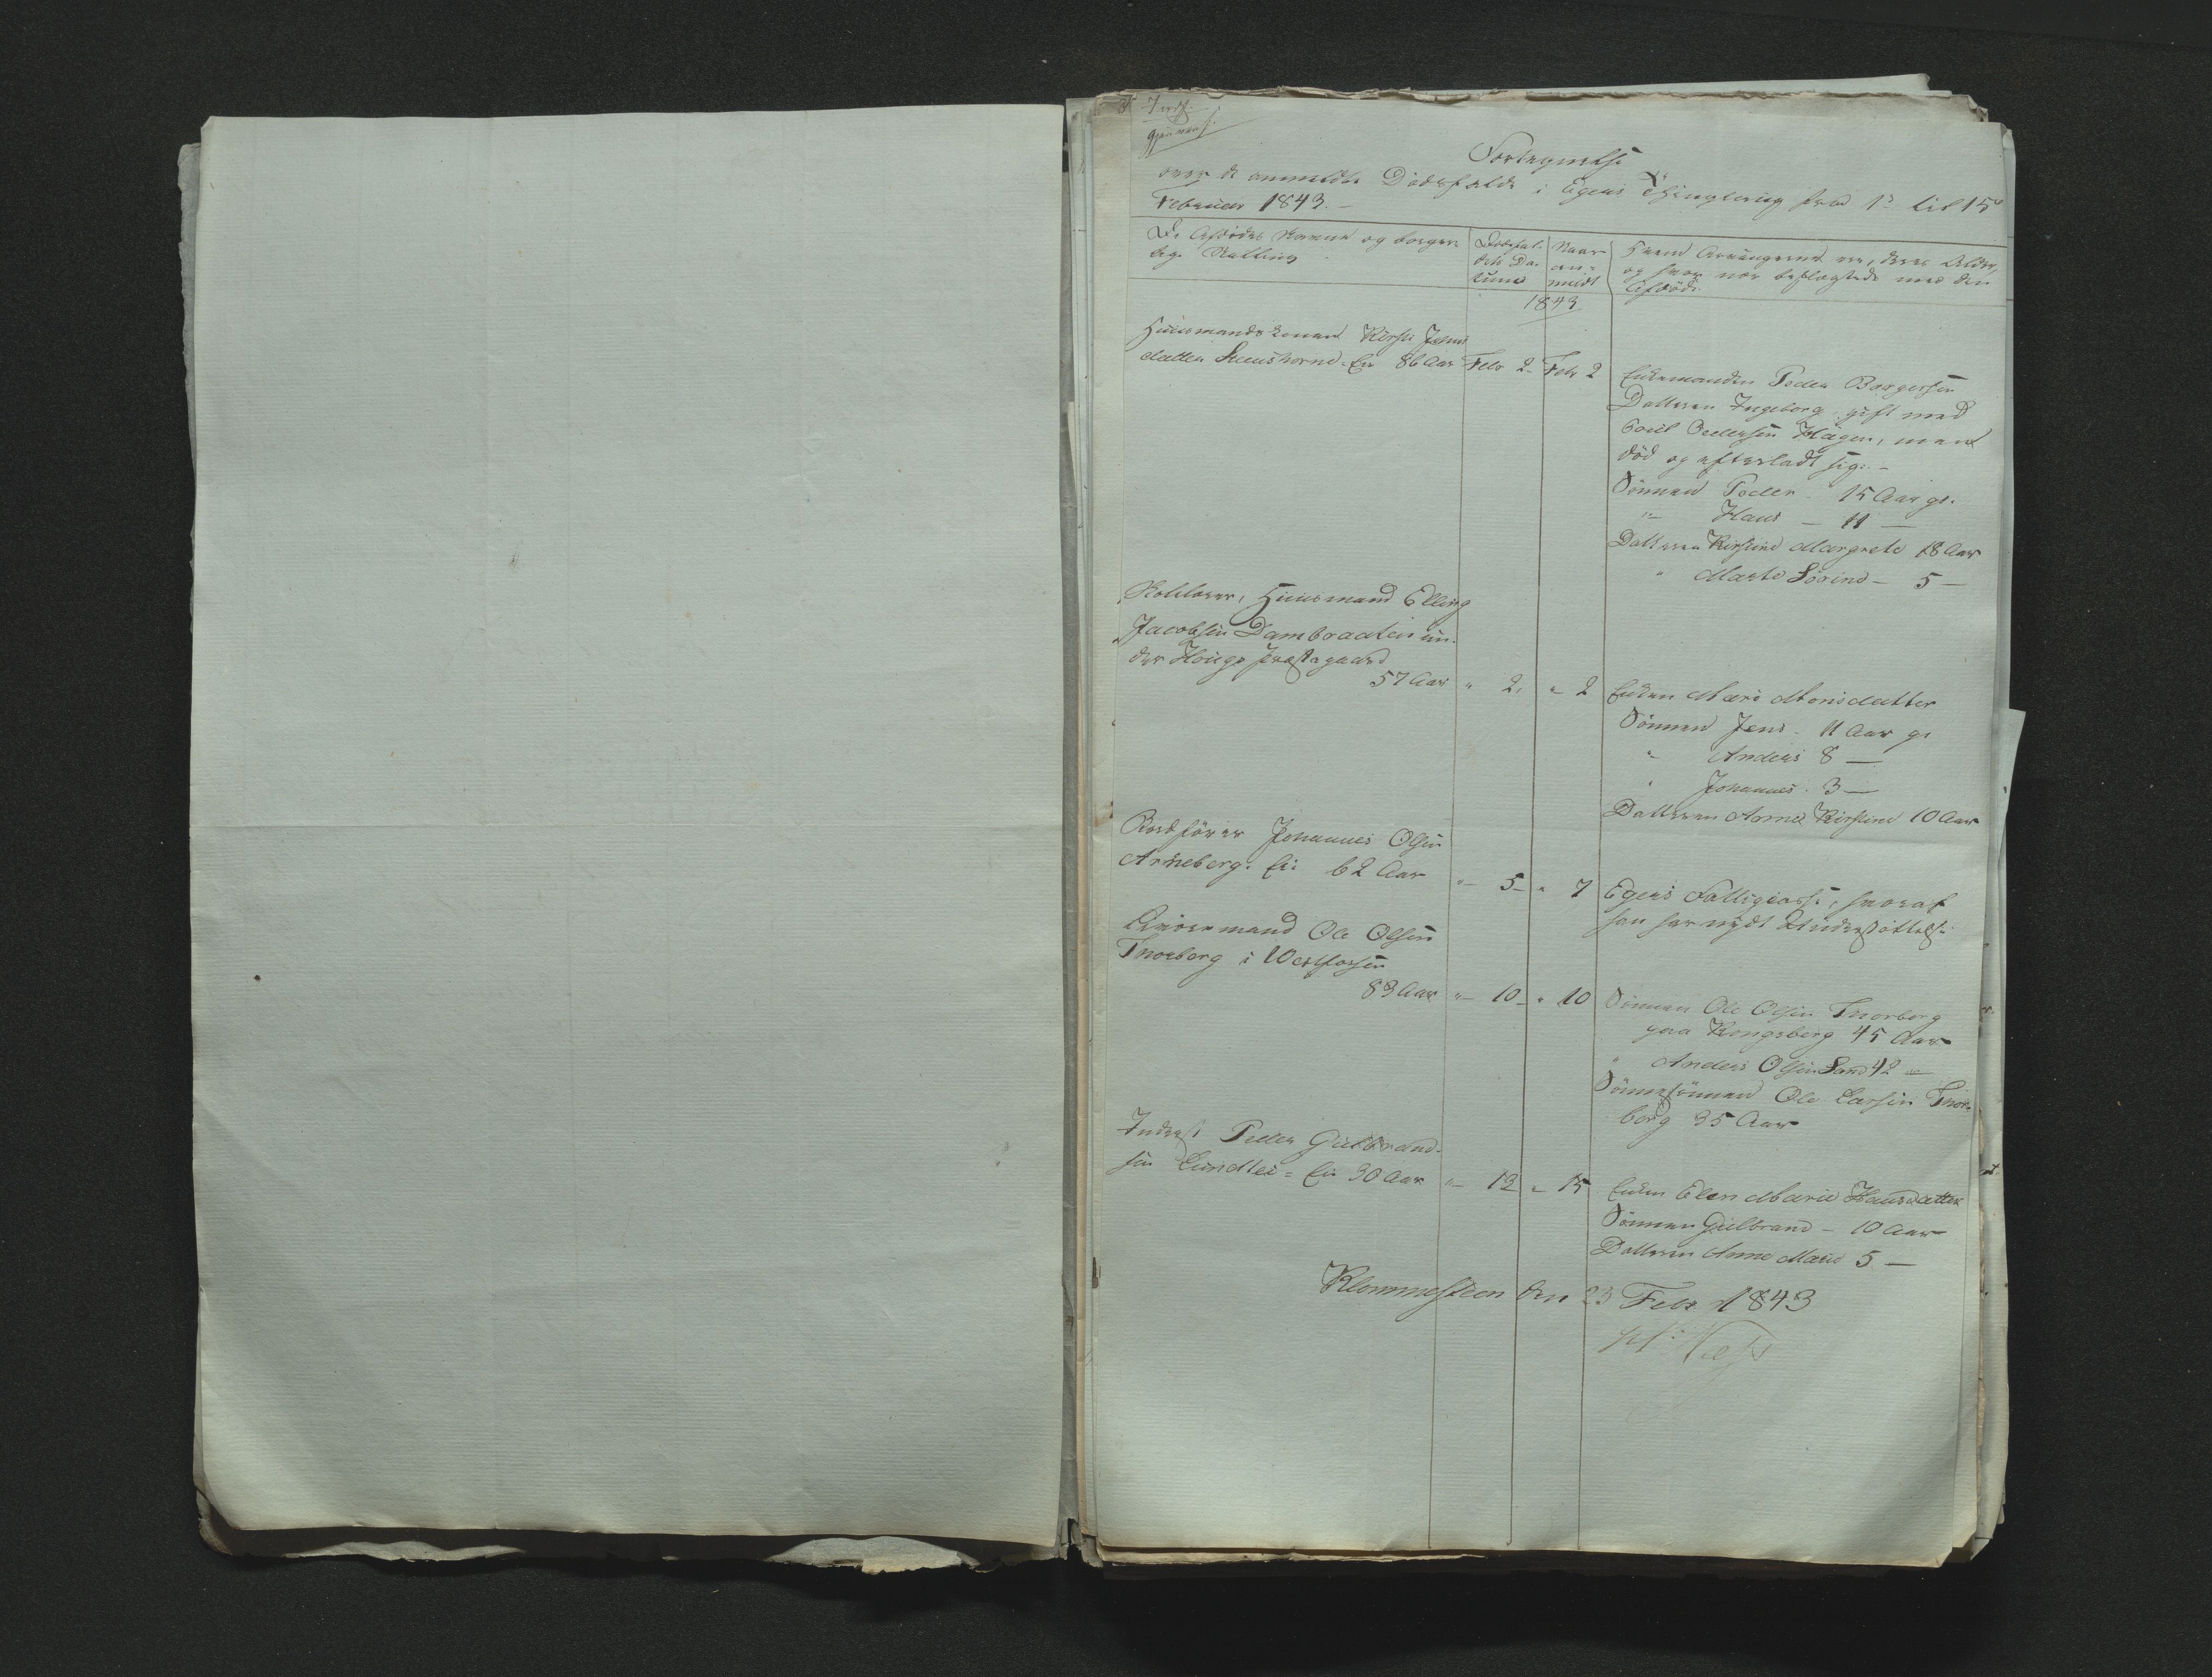 Fortegnelse
over de anmeldte Dødsfalde i Egers Thinglaug fra 1ste til 15de
Februar 1843. –
De Afdødes Navne og borger-
lige Stilling
Dødsfal-
dets Da-
tum
Naar
an-
meldt
Hvem Arvingerne ere, deres Alder,
og hvor nær beslægtede med den
Afdøde.
1843
Huusmandskonen Kirsti Jens
datter Skeushorne - Eie 86 Aar Febr 2 - Febr 2
Enkemanden Peder Borgersen
Datteren Ingeborg gift med
Poul Pedersen Hagen, men
død og efterladt sig: –
Sønnen Peder - 15 Aar gl.
"– Hans – 11 –
Datteren Kirstine Margrete 18 Aar
" Marte Sørine – 5 –
Huusmand Elling
Jacobsen Dambraaten un-
der Hougs Præstegaard
57 Aar " 2. " 2
Enken Mari Monsdatter
Sønnen Jens - 11 Aar gl
" Anders 8 –
" Johannes. 3 –
Datteren Anne Kirstine 10 Aar
Rodfører Johannes Olsen
Arneberg. Eie 62 Aar "– 5 – " 7
Egers Fattigcasse, hvoraf
han har nydt Understøttelse
Ole Olsen
Thorberg i Westfossen
83 Aar "– 10 – " 10
Sønnen Ole Olsen Thorberg
paa Kongsberg 45 Aar
" Anders Olsen Sand 42 –
Sønnesønnen Ole Larsen Thor-
berg 35 Aar
Inderst Peder Gulbrand-
sen Lundtei - Eie 30 Aar "– 12 " 15
Enken Elen Marie Hansdatter
Sønnen Gulbrand – 10 Aar
Datteren Anne Marie 5 –
Klommesteen den 23 Febr 1843